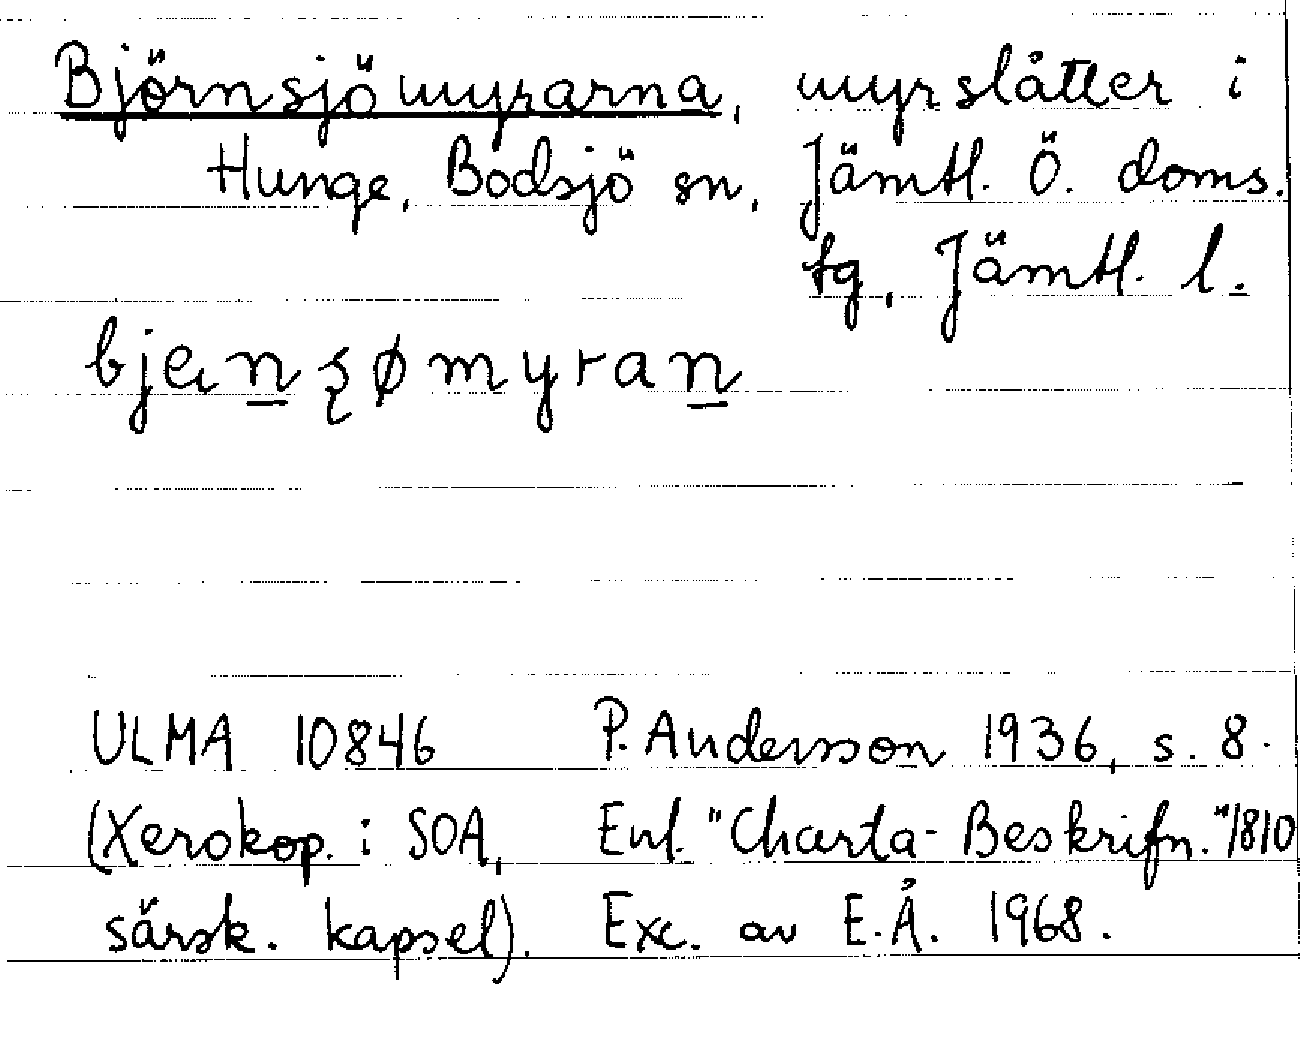 Björnsjömyrarna, myrslåtter i
Hunge, Bodsjö sn, Jämtl. Ö. doms.
tg, Jämtl. l.
ULMA 10846 P. Andersson 1936, s. 8.
(Xerokop. i SOA, Enl. "Charta-Beskrifn." 1810
särsk. kapsel). Exc. av E.Å. 1968.